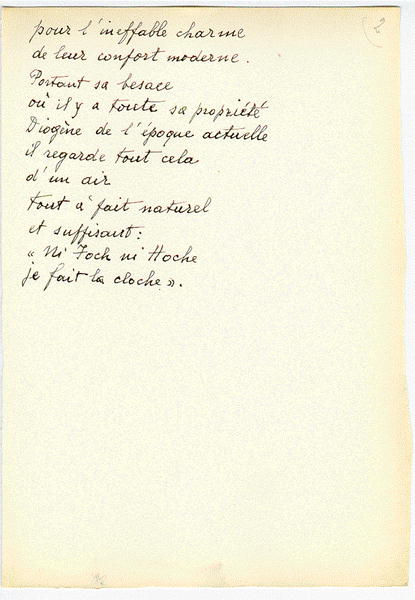 2
pour l'ineffable charme
de leur confort moderne.
Portant sa besace
où il y a toute sa propriété
Diogène de l'époque actuelle
il regarde tout cela
d'un air
tout à fait naturel
et suffisant:
« Ni Foch ni Hoche
je fait la cloche ».